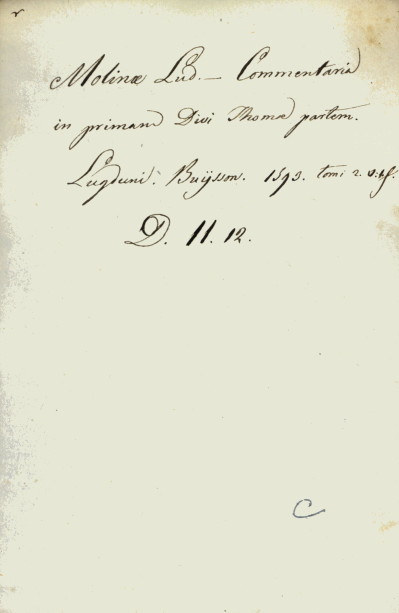 Molinæ Lud. — Commentaria
in primam Divi Thomæ partem.
Lugduni. Buÿsson. 1593. tomi 2. v. f.
D. 11. 12.
C